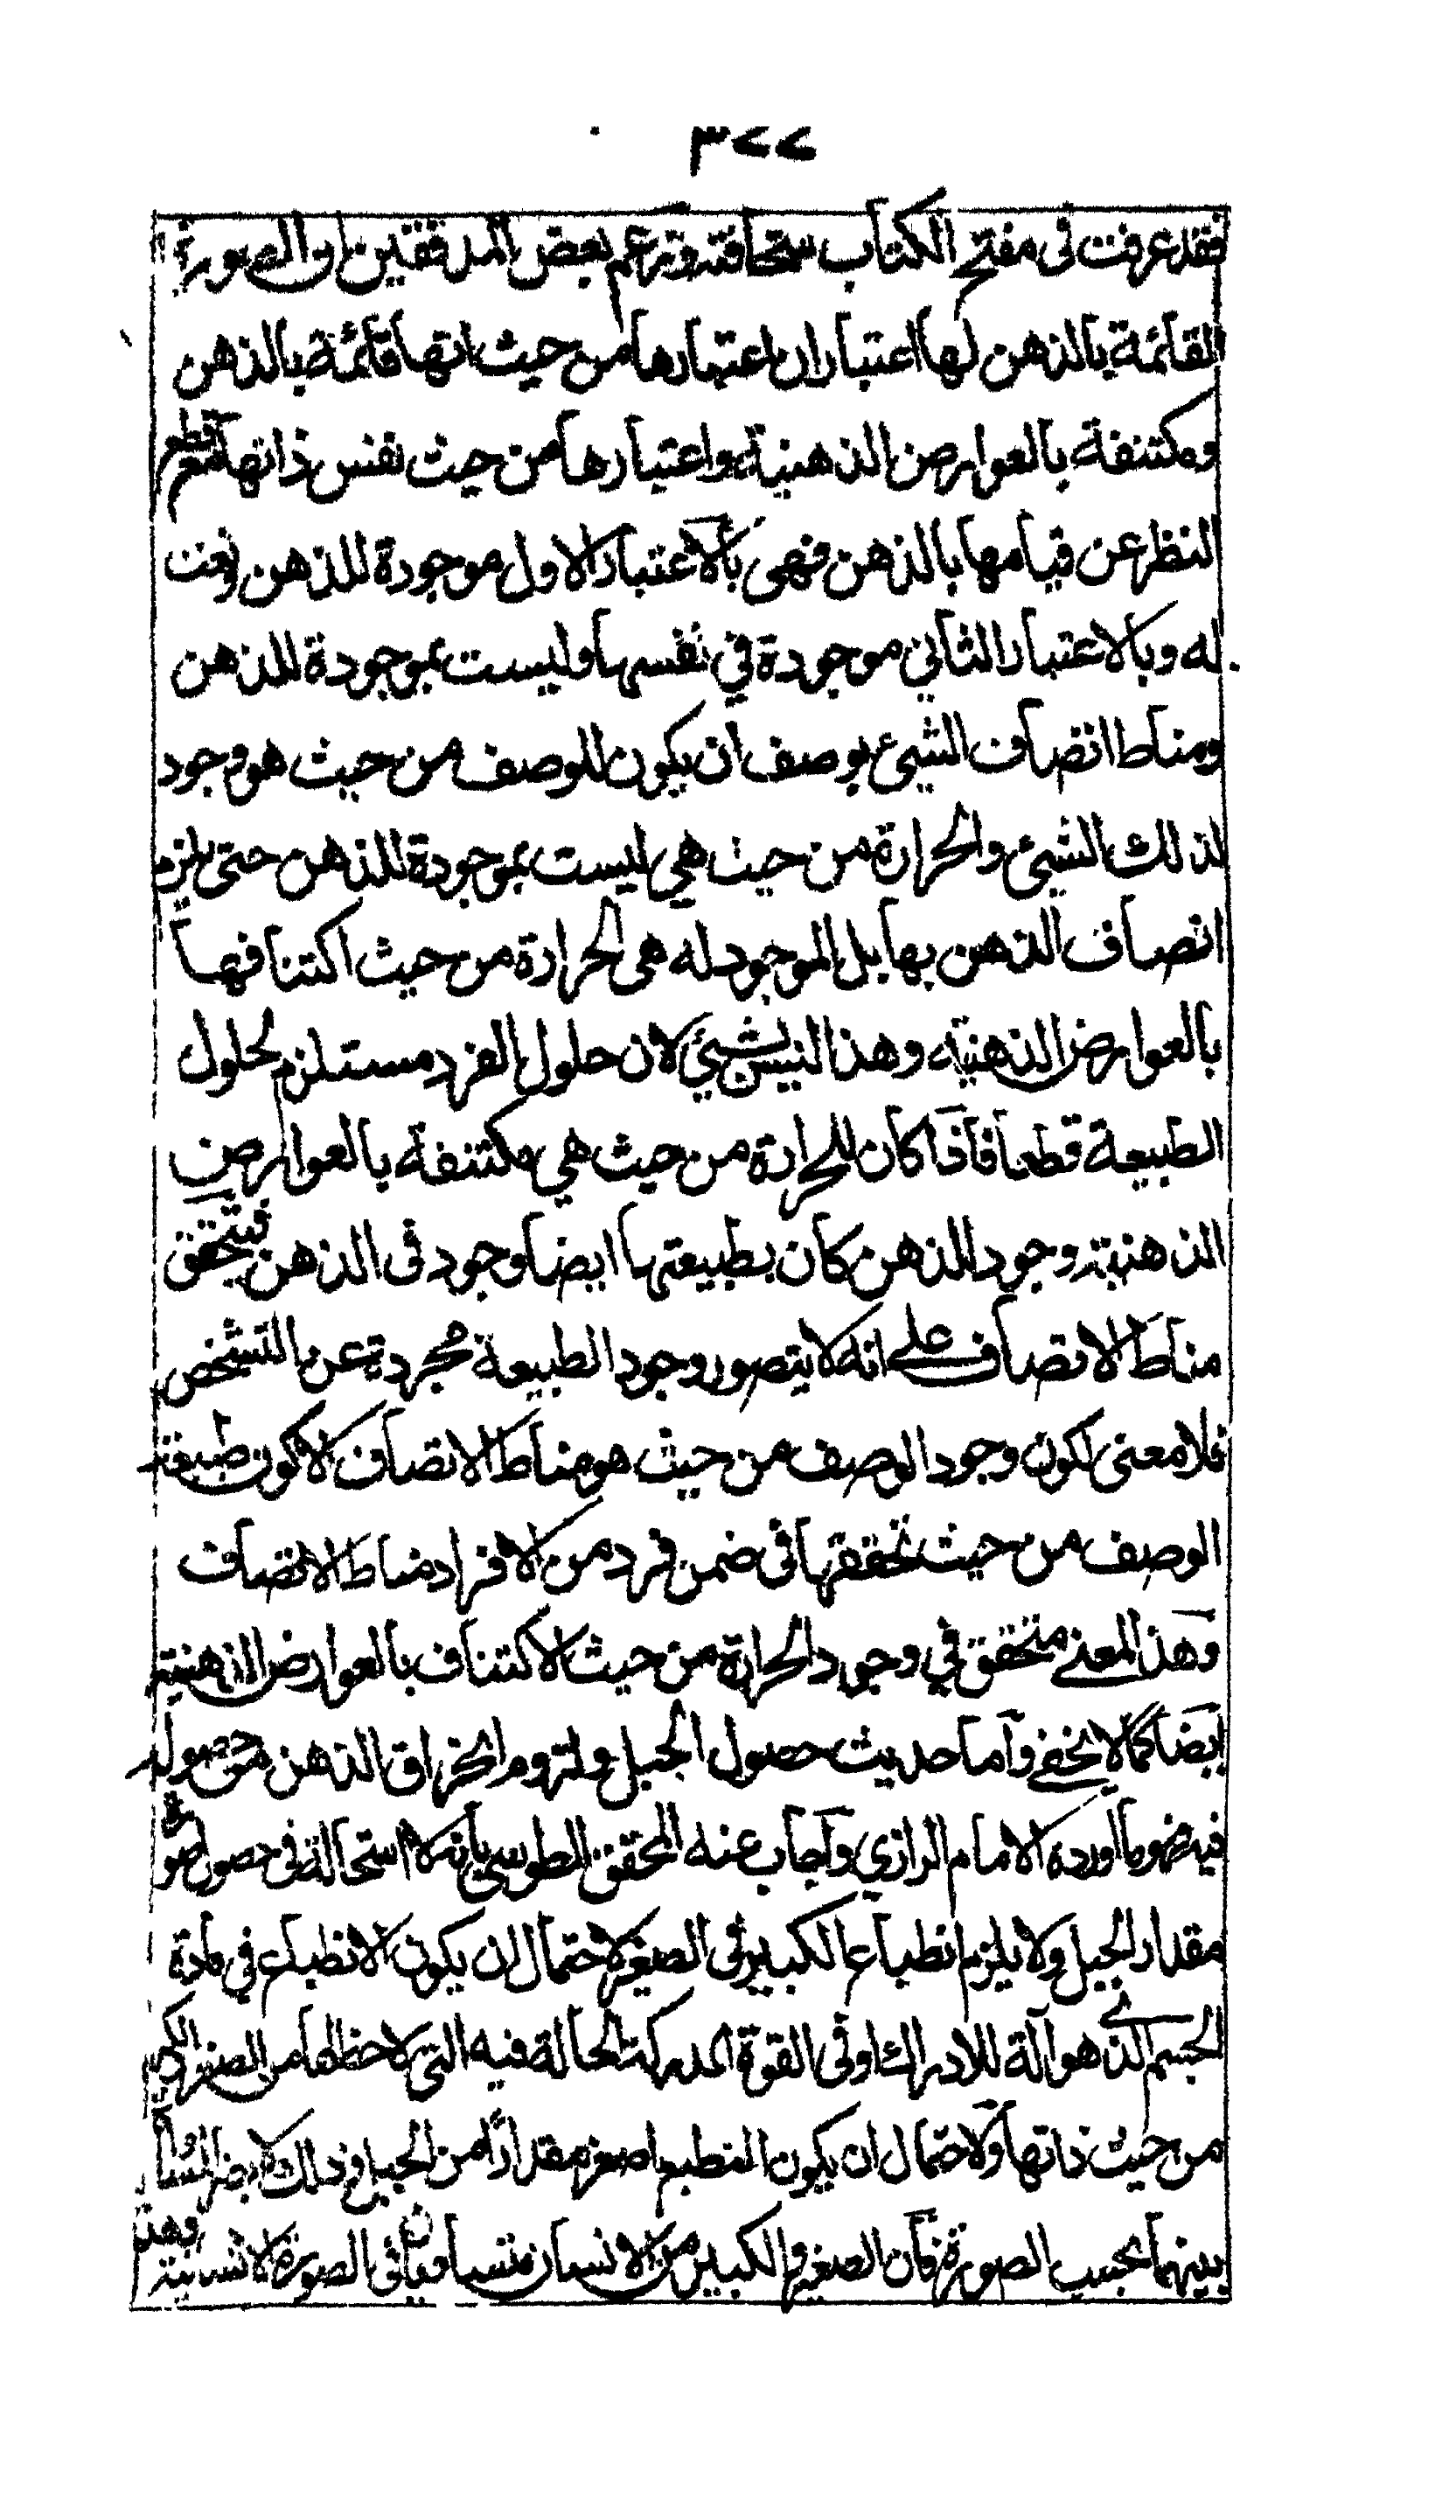 ٣٢٢
فقد عرفت فى مفتح الكتاب سخافته وزعم بعض المدققين ان الصورة
القائمة بالذهن لها اعتباران اعتبارها من حيث انها قائمة بالذهن
ومكتنفة بالعوارض الذهنية واعتبارها من حيث نفس ذاتها مع قطع
النظر عن قيامها بالذهن فهى بالاعتبار الاول موجودة للذهن ونعت
له وبالاعتبار الثاني موجودة في نفسها وليست بموجودة للذهن
ومناط اتصاف الشيئ بوصف ان يكون للوصف من حيث هو وجود
لذلك الشيئ والحرارة من حيث هي ليست بموجودة للذهن حتى يلزم
اتصاف الذهن بها بل الموجود له هى الحرارة من حيث اكتنافها
بالعوارض الذهنية وهذا ليس بشيئ لان حلول الفرد مستلزم لحلول
الطبيعة قطعا فاذا كان للحرارة من حيث هي مكتنفة بالعوارض
الذهنية وجود للذهن كان بطبيعتها ايضا وجود فى الذهن فيتحقق
مناط الاتصاف على انه لا يتصور وجود الطبيعة مجردة عن التشخص
فلا معنى لكون وجود الوصف من حيث هو مناط الاتصاف الا كون طبيعة
الوصف من حيث تحققها فى ضمن فرد من الافراد مناط الاتصاف
وهذا المعنى متحقق في وجود الحرارة من حيث الاكتناف بالعوارض الذهنية
ايضا كما لا يخفى وأما حديث حصول الجبل ولزوم انخراق الذهن من حصوله
فيه فهو ما اورده الامام الرازي وآجاب عنه المحقق الطوسي بانه لا استحالة فى حصول صورة
مقدار الجبل ولا يلزم انطباع الكبير فى الصغير لاحتمال ان يكون الانطباع في مادة
الجسم الذى هو آلة للادراك او فى القوة المدركة الحالة فيه التي لاحظ لها من الصغر والكبر
من حيث ذاتها ولاحتمال ان يكون المنطبع اصغر مقدارا من الجبل وذلك لا يضر المساواة
بينهما بحسب الصورة فان الصغير والكبير من الانسان متساويان فى الصورة الانسانية وهذا